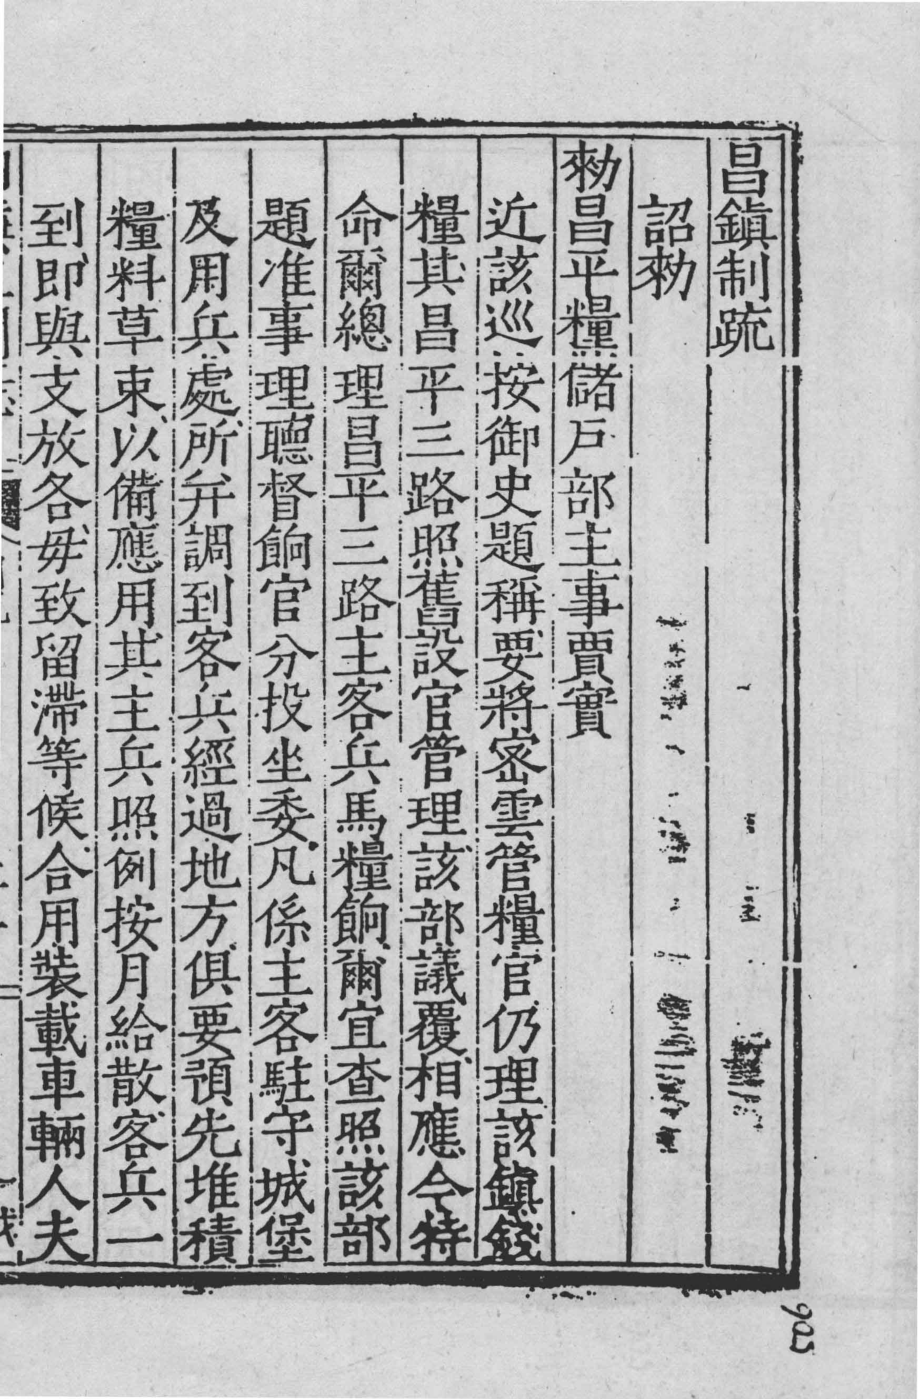 昌鎮制疏
詔勑
勑昌平糧儲戶部主事賈實
近該巡按御史題稱要將密雲管糧官仍理該鎮錢
糧其昌平三路照舊設官管理該部議覆相應今特
命爾總理昌平三路主客兵馬糧餉爾宜查照該部
題准事理聽督餉官分投坐委凡係主客駐守城堡
及用兵處所并調到客兵經過地方俱要預先堆積
糧料草束以備應用其主兵照例按月給散客兵一
到即與支放各毋致留滯等候合用裝載車輛人夫
903